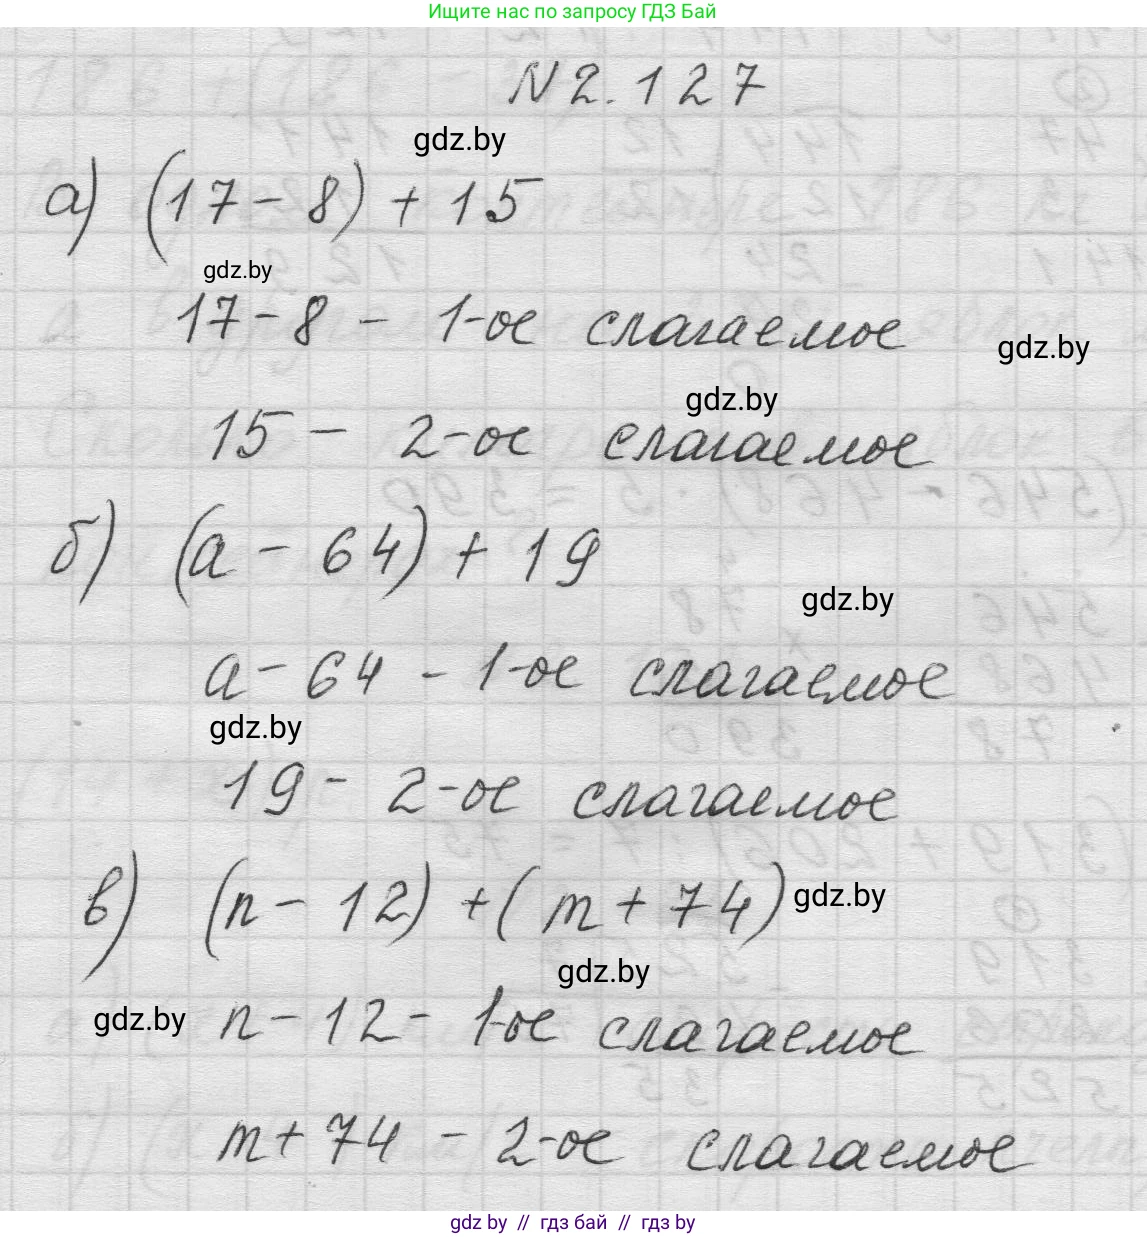 Ищите нас по запросу ГДЗ Бай
N 2.127
gdz.by
а) (17 - 8) + 15
gdz.by
17 - 8 - 1-ое слагаемое
gdz.by
gdz.by
15 - 2-ое слагаемое
б) (а - 64) + 19
gdz.by
а - 64 - 1-ое слагаемое
gdz.by
19 - 2-ое слагаемое
в) (n - 12) + (m + 74)
gdz.by
gdz.by
gdz.by
n - 12 - 1-ое слагаемое
m + 74 - 2-ое слагаемое
gdz by // гдз бай // гдз by